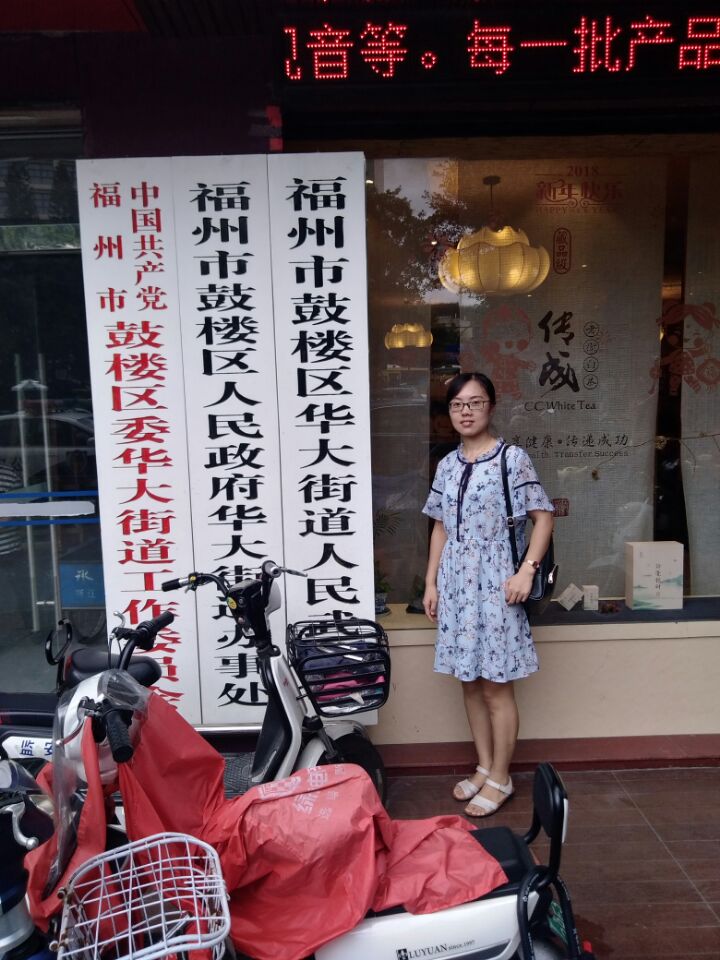 音等。每一批产品
中国共产党
福州市
鼓楼区委华大街道工作委员会
福州市鼓楼区人民政府华大街道办事处
福州市鼓楼区华大街道人民武
2018
新年快乐
HAPPY NEW YEAR
藏品级
传成
老白茶
CC White Tea
健康·传递成功
Health Transfer Success
绿源
LUYUAN SINCE 1997